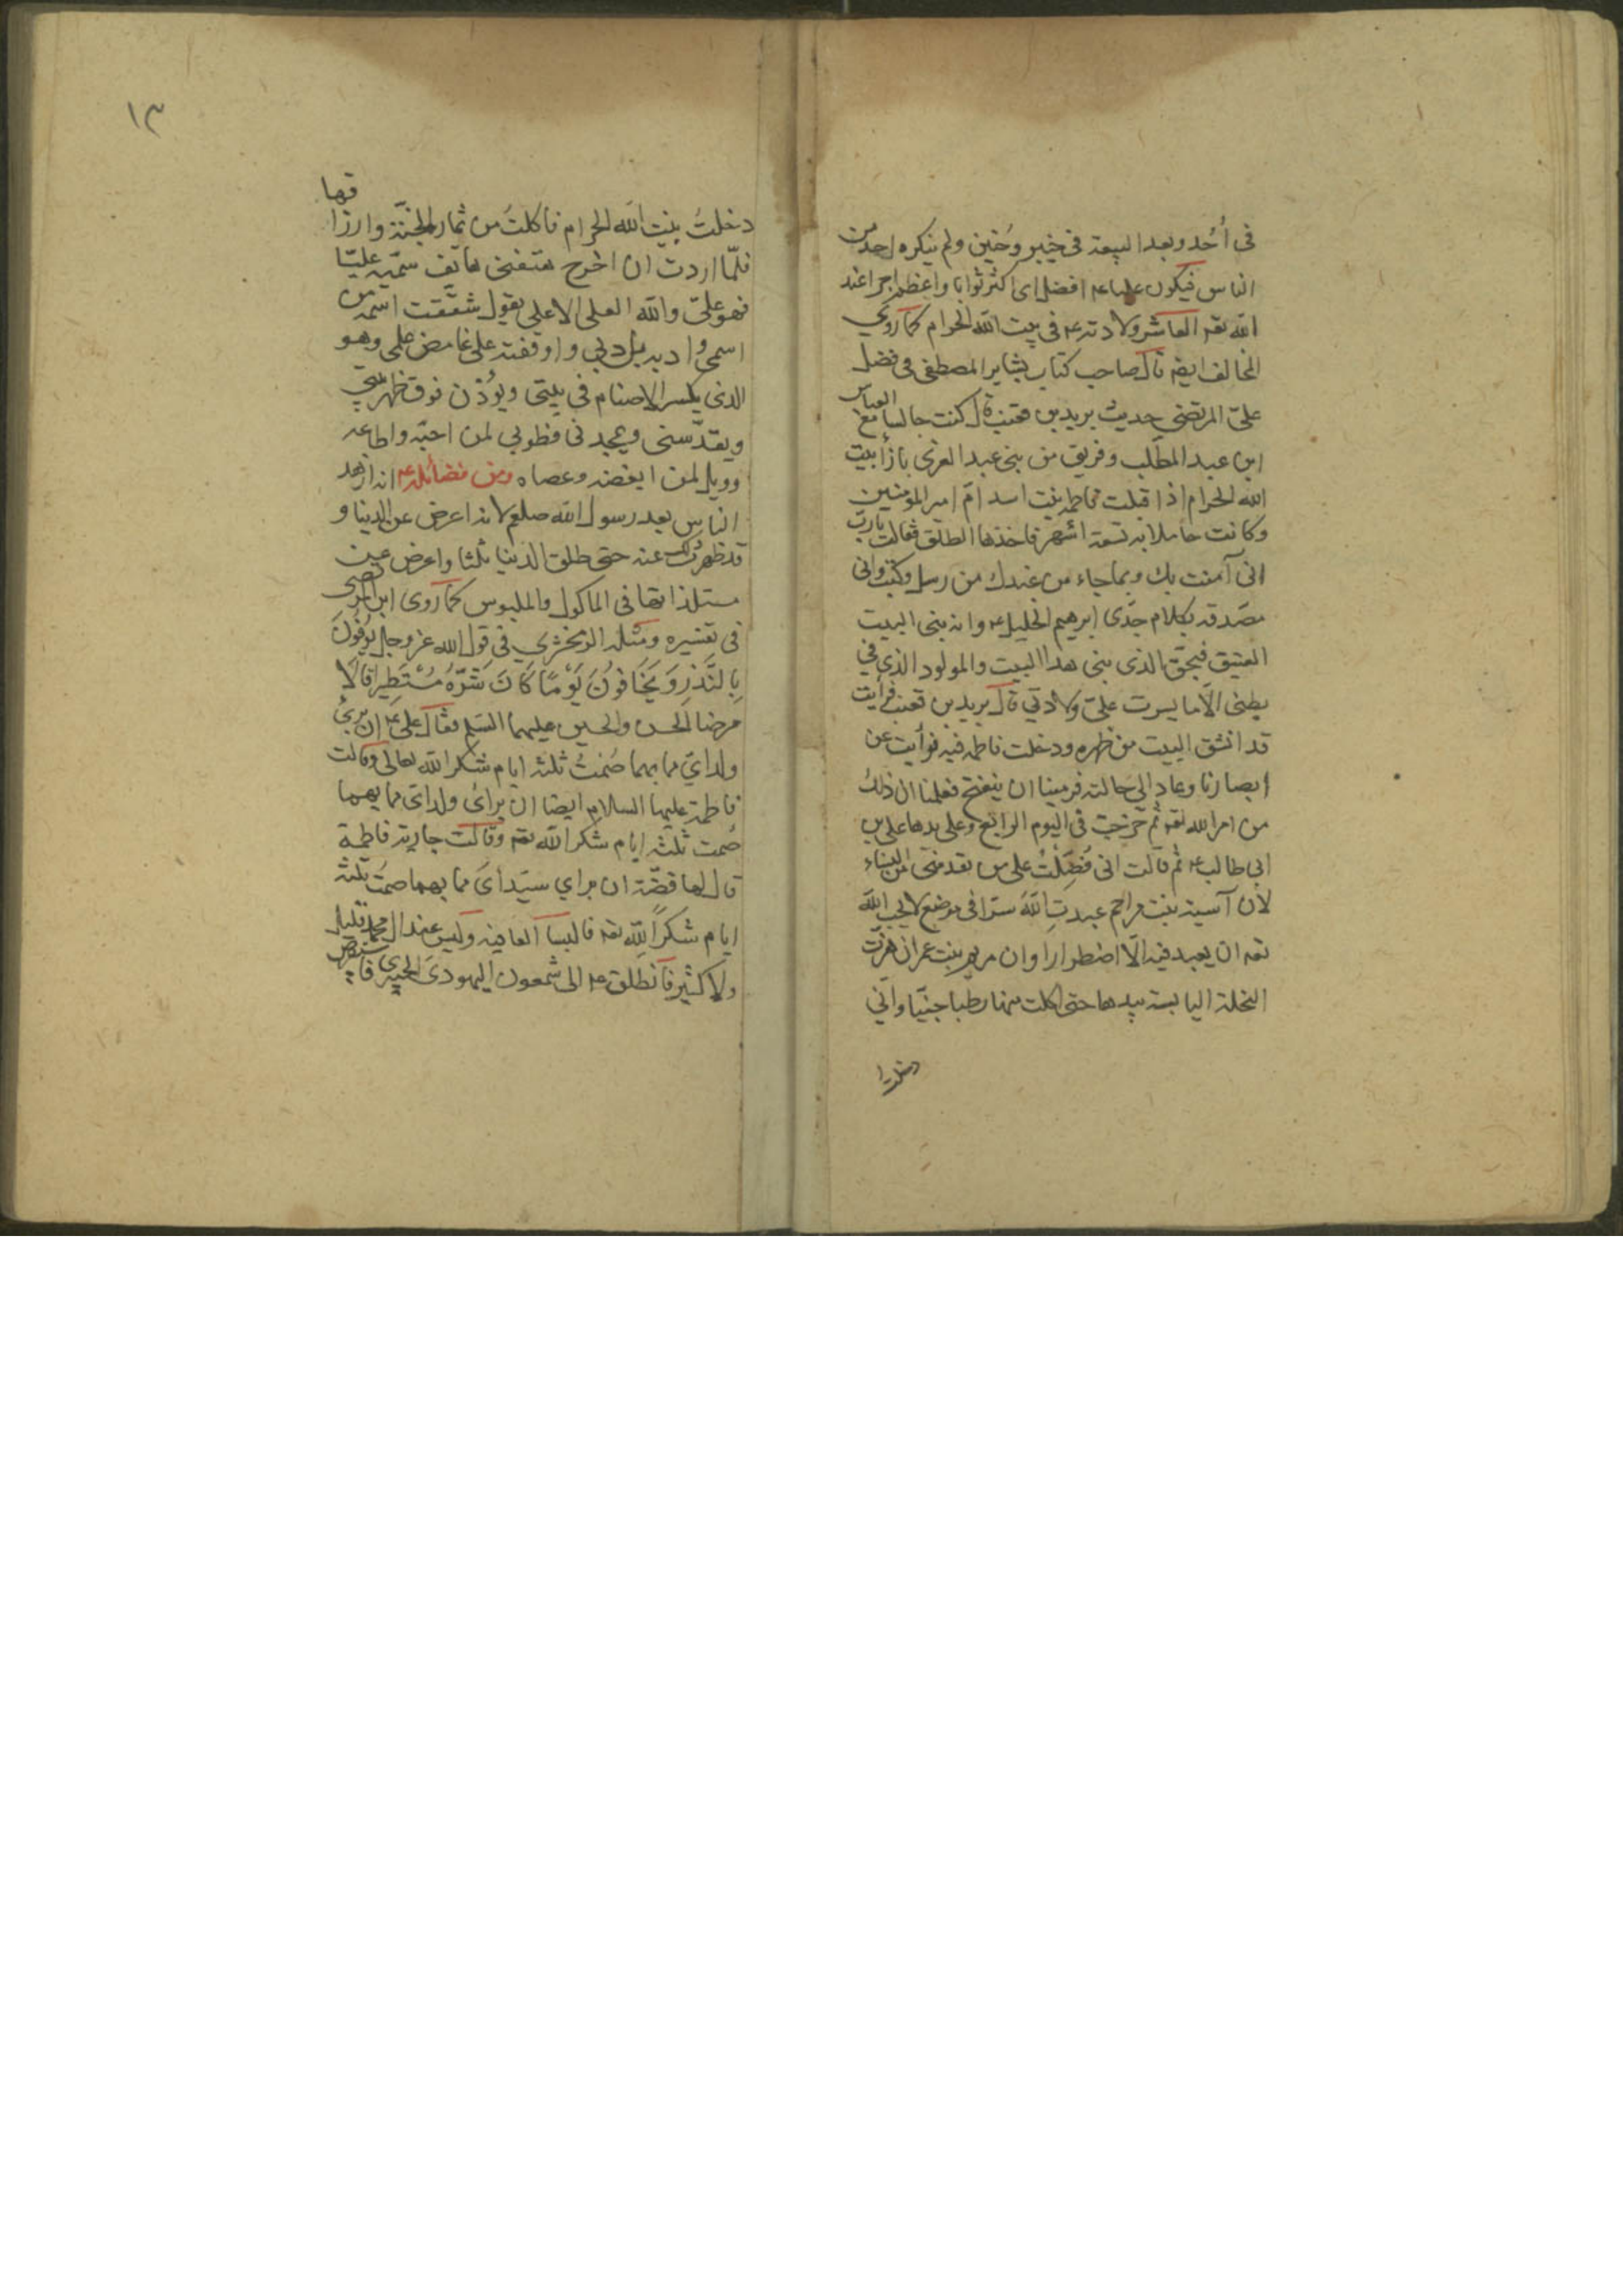 في أُحُد وبعد البيعة في خيبر وحُنين ولم ينكره احد من
الناس فيكون عليا ع افضل اى اكثر ثوابا واعظم اجرا عند
الله تعه العاشر ولادته ع في بيت الله الحرام كما روي
المخالف ايضا قال صاحب كتاب بشاير المصطفى في فضل
علىّ المرتضى حديث يزيد بن قعنب قال كنت جالسا مع العباس
ابن عبد المطّلب وفريق من بنى عبد العزى بازأ بيت
الله الحرام اذ اقبلت فاطمه بنت اسد امّ امير المؤمنين
وكانت حاملا به تسعة أشهر فاخذها الطلق فقالت يا ربّ
انى آمنت بك وبما جاء من عندك من رسل وكتب وانى
مصّدقه بكلام جدّى ابرهيم الخليل ع وانه بنى البيت
العتيق فبحقّ الذى بنى هذا البيت والمولود الذي في
بطنى الّا ما يسرت علىّ ولادتي قال يزيد بن قعنب فرأيت
قد انشق البيت من ظهره ودخلت فاطمه فيه عن
ابصارنا وعاد الى حالته فرمينا ان ينفتح فعلمنا ان ذلك
من امر الله تعه ثم خرجت في اليوم الرابع وعلى يدها على بن
ابى طالب ع ثم قالت انى فُضِّلتُ على من تقدمنى من النساء
لان آسية بنت مزاحم عبدتِ اللهَ سترا في موضع لا يحب اللهَ
تعه ان يعبد فيه الّا اضطرارا وان مريم بنت عمران هزّت
النخلة اليابسة بيدها حتى اكلت منها رطبا جنيّا وانّي
دخلت
١٣
دخلتُ بيت الله الحرام فاكلتُ من ثمار الجنّة وارزاقها
فلمّا اردت ان اخرج هتفنى هاتف سمّيه عليّا
فهو علىّ والله العلى الاعلى يقول شققت اسمه من
اسمى وادبه بادبي واوقفته على غامض علمى وهو
الذى يكسر الاصنام في بيتى ويُؤذن فوق ظهر بيتي
ويقدّسنى ويمجدنى فطوبى لمن احبّه واطاعه
وويل لمن ابغضه وعصاه ومن فضائله ع انه ازهد
الناس بعد رسول الله صلعم لانه اعرض عن الدنيا و
قد ظهر ذلك عنه حتى طلق الدنيا ثلثا واعرض عن
مستلذاتها في الماكول والملبوس كما روى ابن
في تفسيره ومثله الزمخشري في قول الله عز وجل يُوفُونَ
بِالنَّذْرِ وَيَخَافُونَ يَوْمًا كَانَ شَرُّهُ مُسْتَطِيرًا قالا
مرضا الحسن والحسين عليهما السلم فقال على ع ان بريَ
ولدايَ مما بهما صُمتُ ثلثه ايام شكرا لله تعالى وقالت
فاطمة عليها السلام ايضا ان برائ ولداى مما بهما
صُمت ثلثه ايام شكرا لله تعه وقالت جارية فاطمة
قال لها فضّة ان براي سيّدايَ مما بهما صمتُ ثلثه
ايام شكراً للّه تعه فالبسا العافيه وليس عند ال محمد قليل
ولا كثير فانطلق ع الى شمعون اليهودى الخيبرى فاستقرض